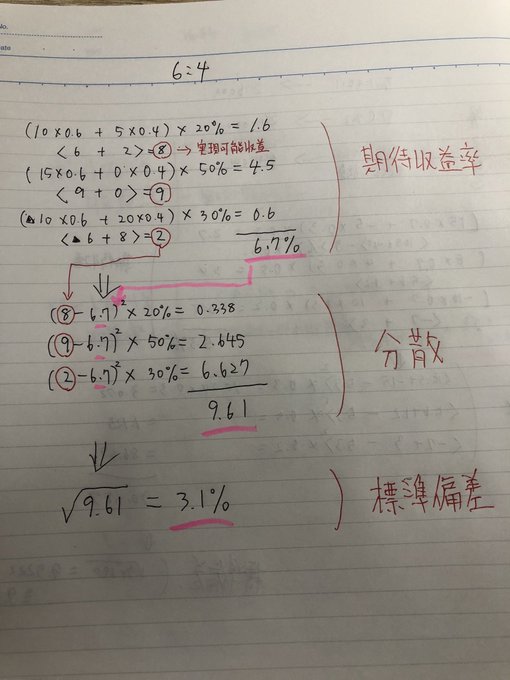 No.
6:4
(10×0.6 + 5×0.4) × 20% = 1.6
<6 + 2> = 8 → 実現可能収益
(15×0.6 + 0×0.4) × 50% = 4.5
<9 + 0> = 9
(▲10×0.6 + 20×0.4) × 30% = 0.6
<▲6 + 8> = 2
6.7%
期待収益率
(8 - 6.7)² × 20% = 0.338
(9 - 6.7)² × 50% = 2.645
(2 - 6.7)² × 30% = 6.627
9.61
分散
√9.61 = 3.1%
標準偏差